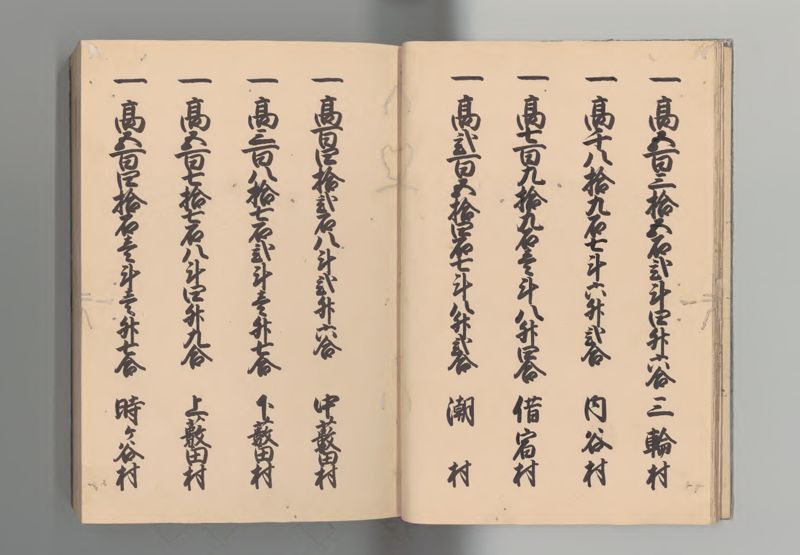 一高五百三拾五石弐斗四升六合 三輪村
一高千八拾九石七斗六升弐合 内谷村
一高七百九拾九石壱斗八升四合 借宿村
一高弐百五拾四石七斗八升弐合 潮村
一高百四拾弐石八斗弐升六合 中藪田村
一高三百八拾七石弐斗壱升七合 下藪田村
一高五百七拾七石八斗四升九合 上藪田村
一高五百四拾石壱斗壱升七合 時ヶ谷村